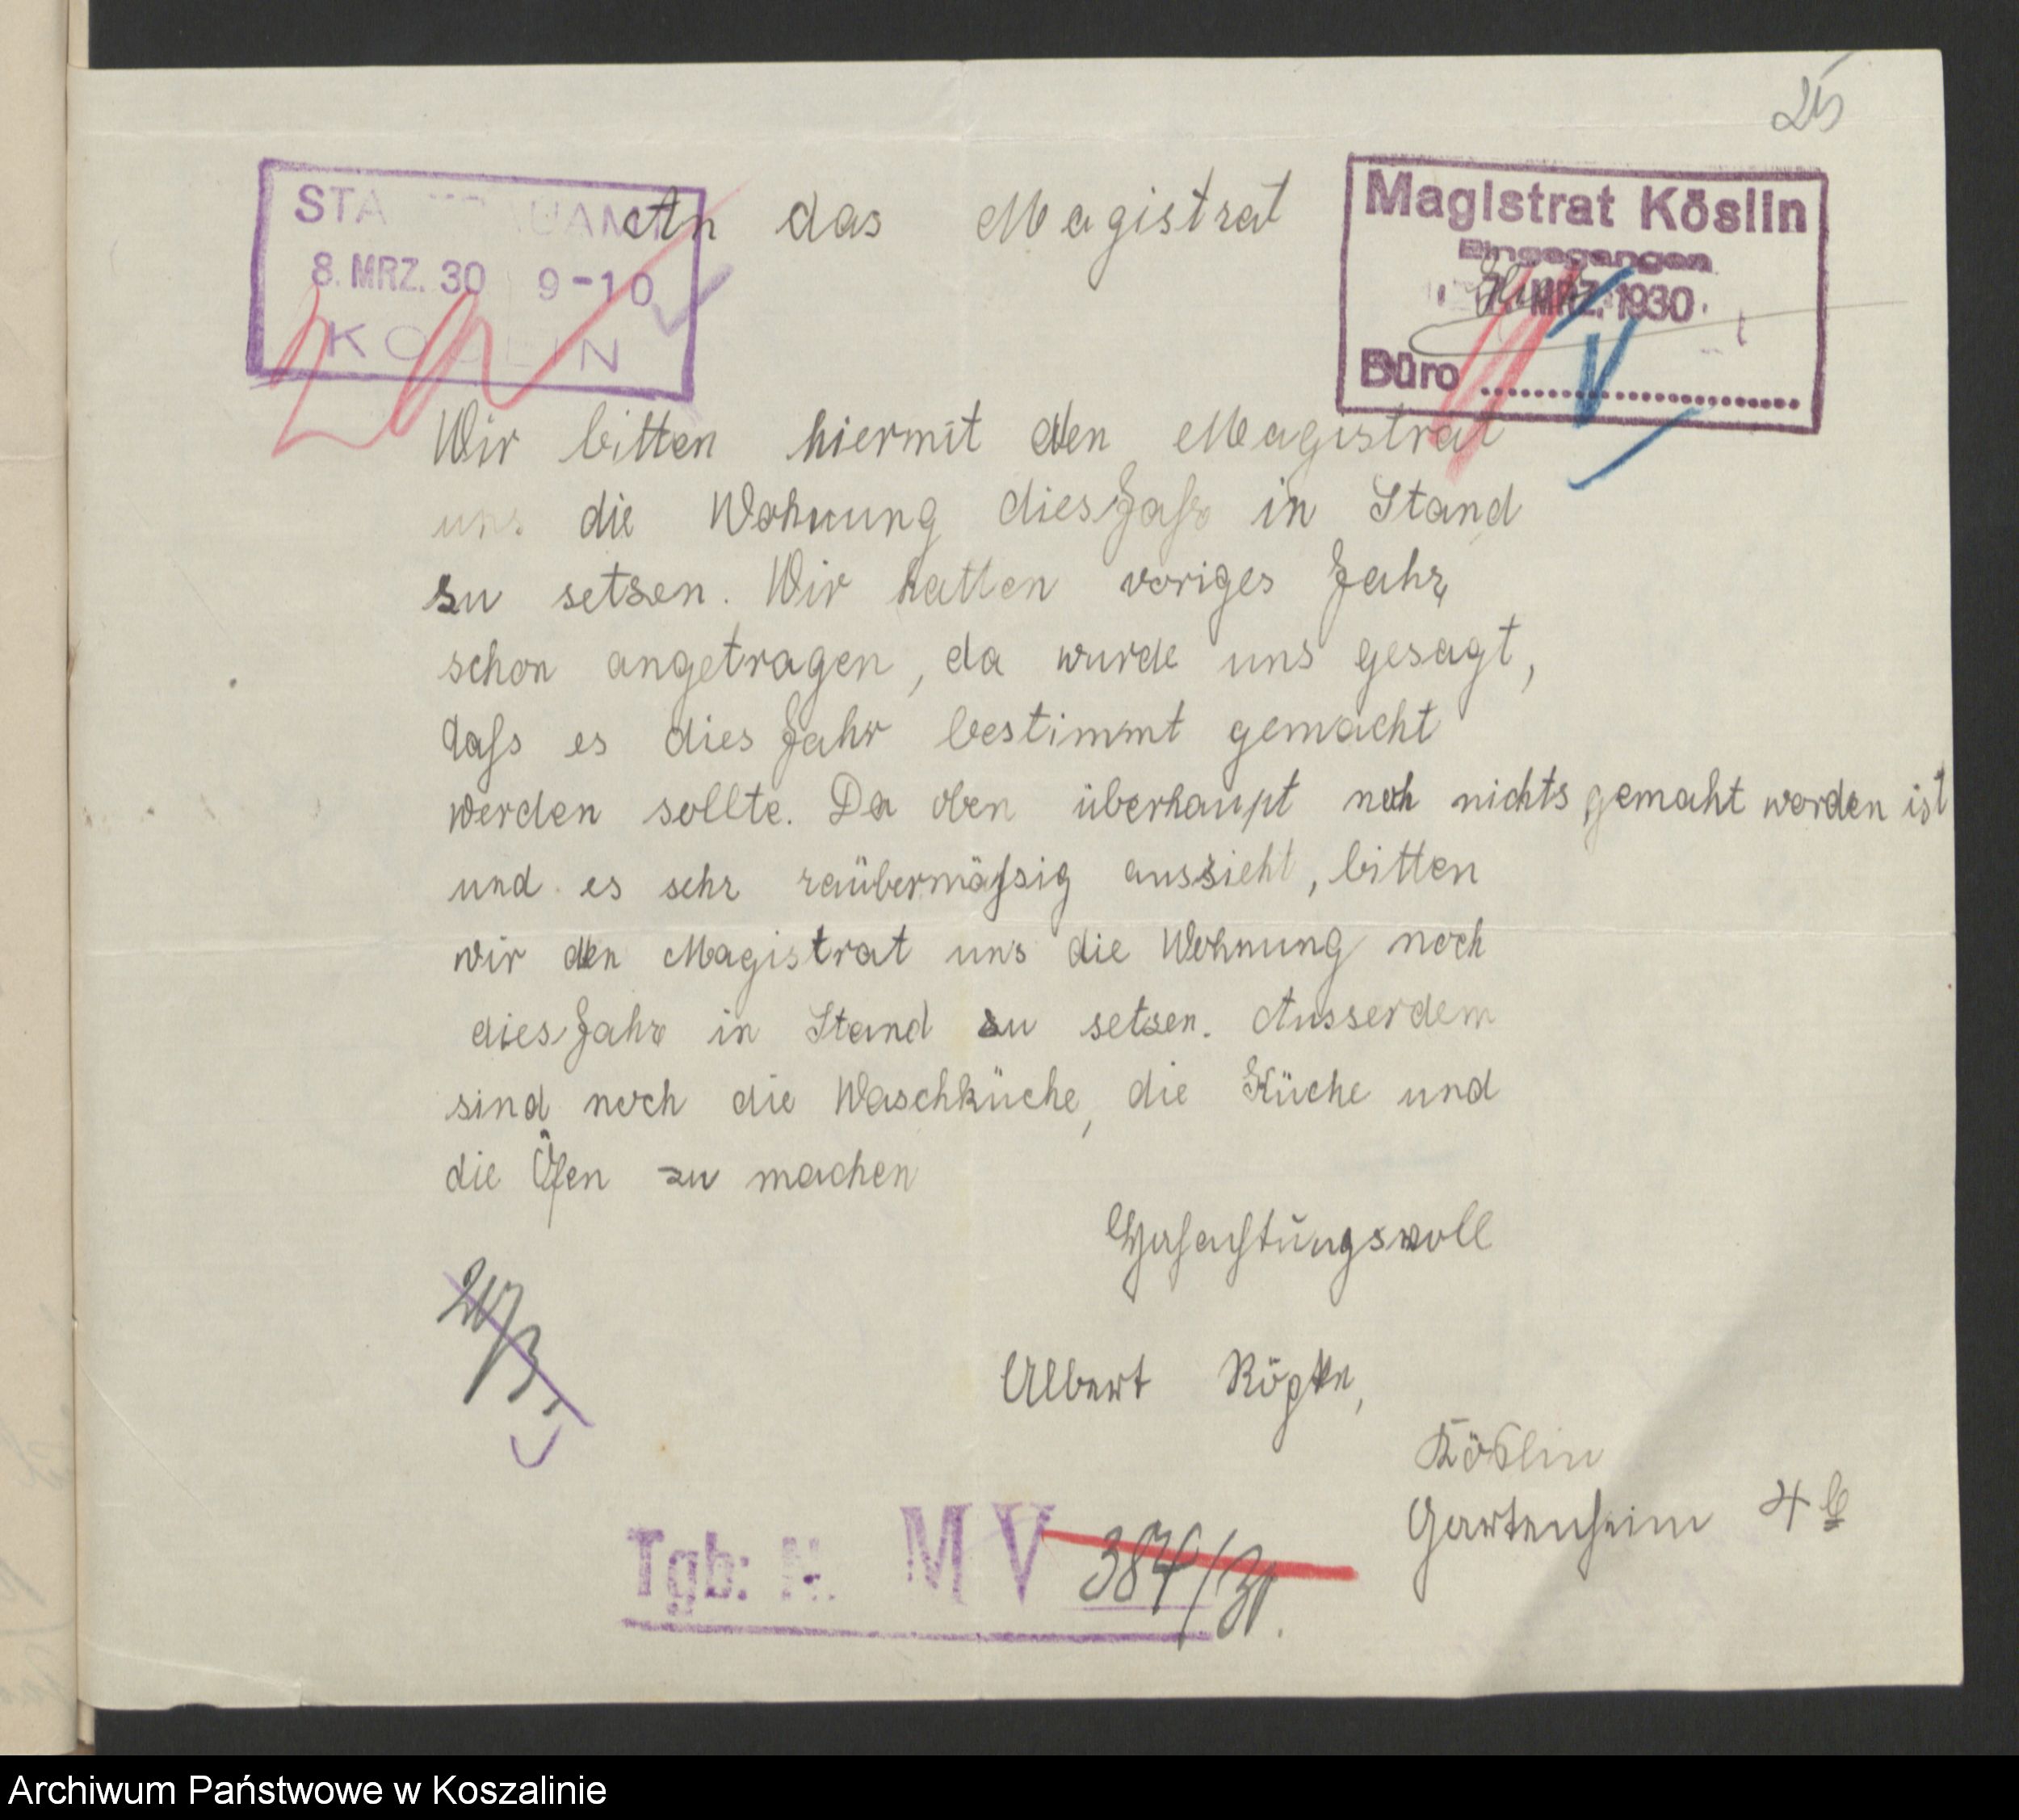 25
STADTBAUAMT
8. MRZ. 30 9-10
KÖSLIN
Magistrat Köslin
Eingegangen
7. MRZ. 1930
Büro
V
An das Magistrat
Wir bitten hiermit den Magistrat
uns die Wohnung dies Jahr in Stand
zu setsen. Wir hatten voriges Jahr
schon angetragen, da wurde uns gesagt,
dass es dies Jahr bestimmt gemacht
werden sollte. Da oben überhaupt noch nichts gemaht worden ist
und es sehr raübermässig aussieht, bitten
wir den Magistrat uns die Wohnung noch
dies Jahr in Stand zu setsen. Ausserdem
sind noch die Waschküche, die Küche und
die Öfen zu machen
Hochachtungsvoll
Albert Röpke,
Köslin
Gartenheim 4 b
Tgb: N. M V 384/30.
Archiwum Państwowe w Koszalinie